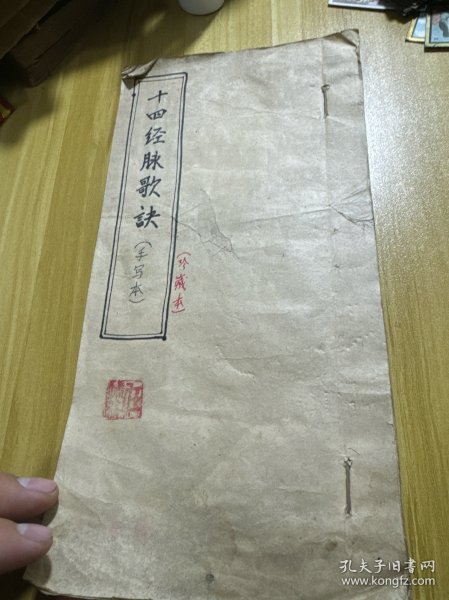 十四经脉歌訣
(手写本)
(珍藏本)
孔夫子旧书网
www.kongfz.com